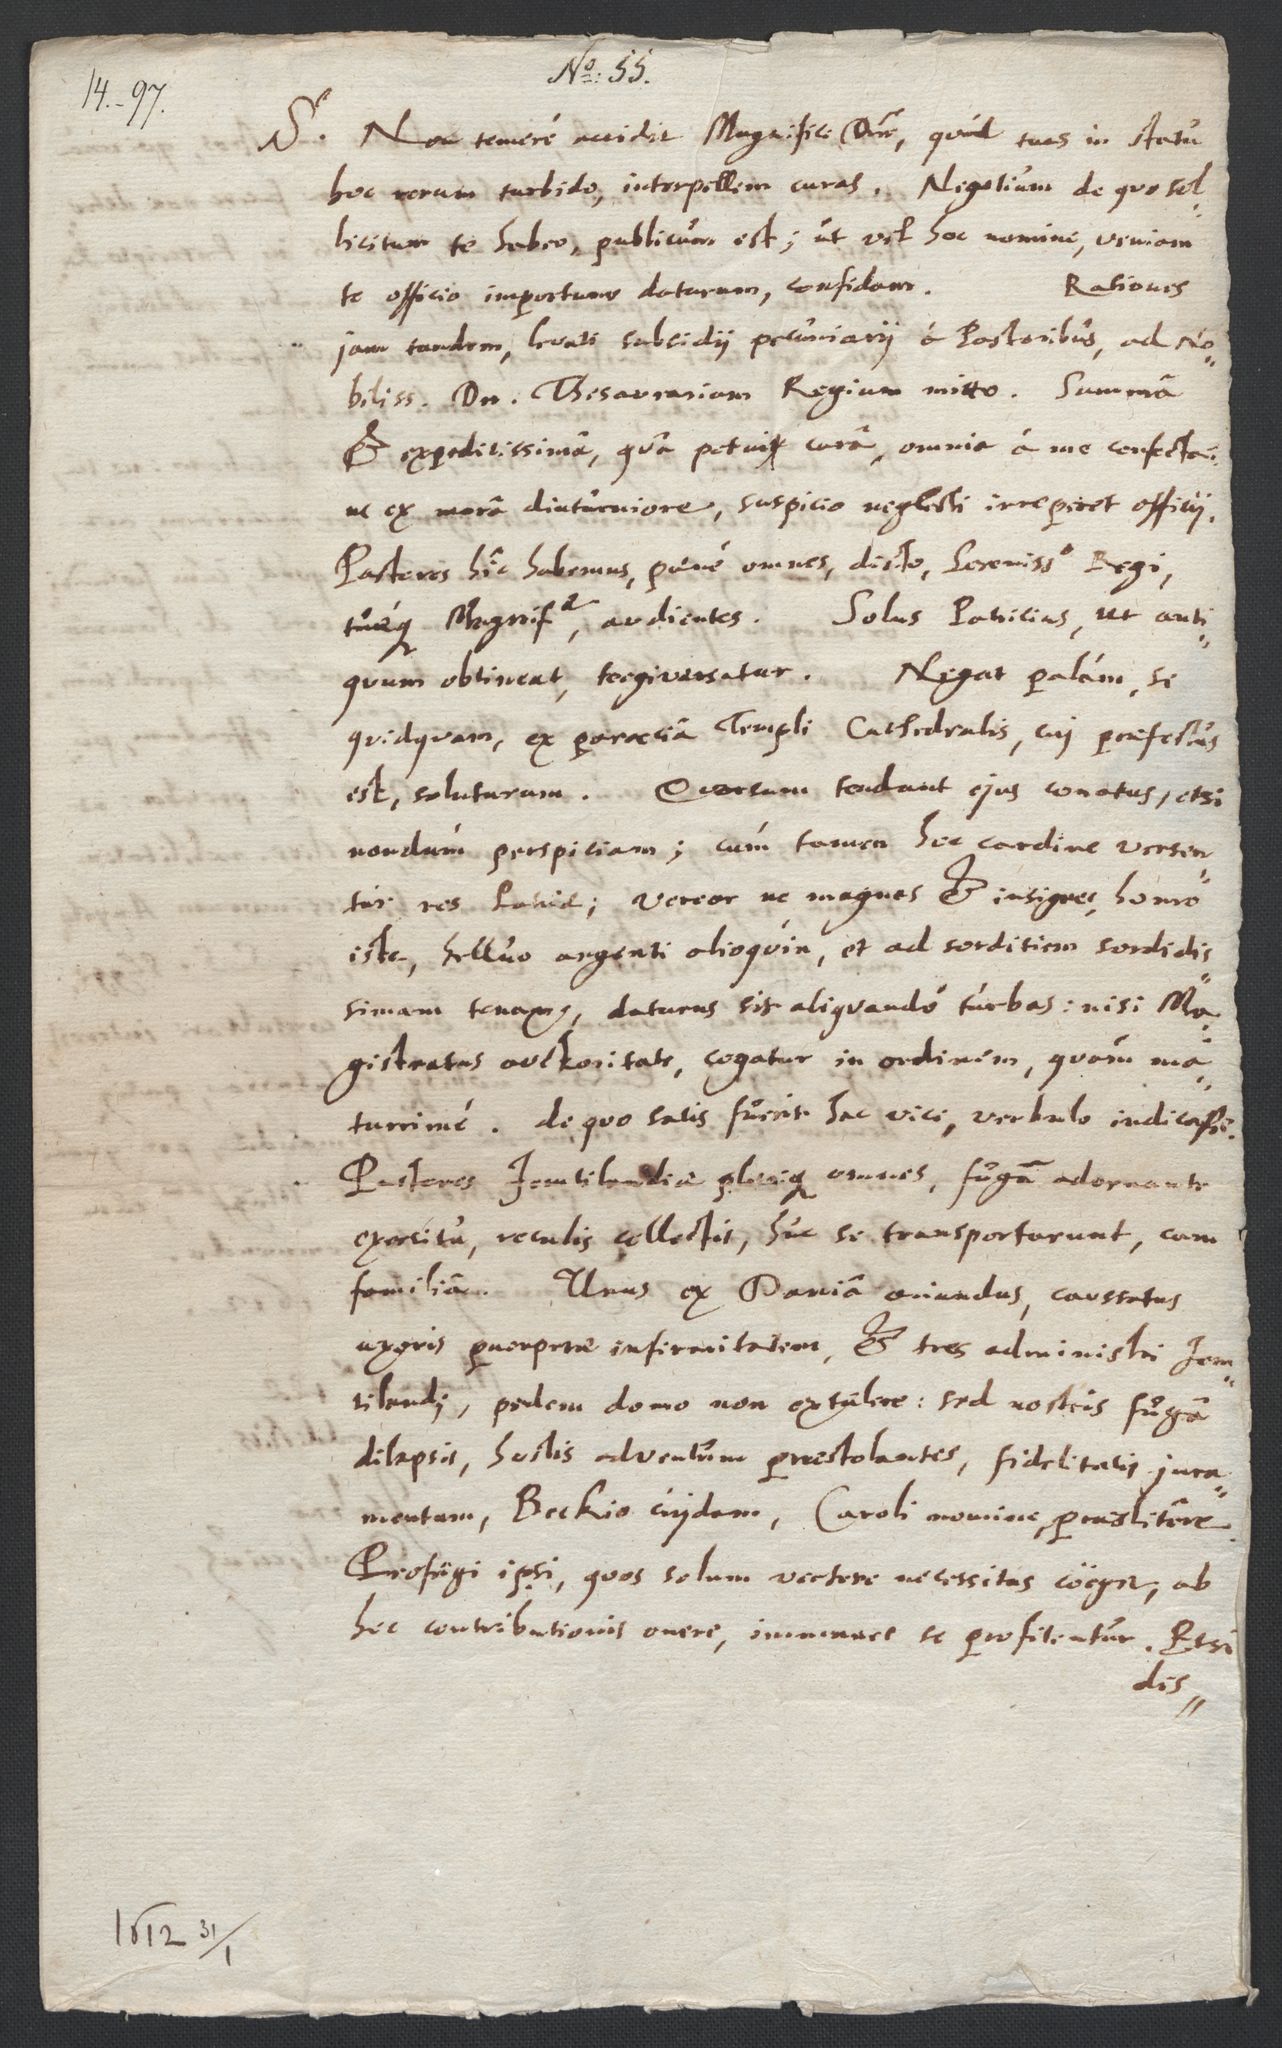 No: 55.
14.-97.
S. Non temerè accidit Magnifice Dne, quòd tuas in statu
hoc rerum turbido, interpellem curas. Negotium de quo sol-
licitum te habeo, publicum est; ut vel hoc nomine, veniam
te officio importuno daturum, confidam. Rationes
jam tandem, levati subsidij pecuniarij à Pastoribus, ad No-
biliss. Dn. Thesaurarium Regium mitto. Summâ
& expeditissimâ, quâ potui curâ, omnia à me confecta:
ne ex morâ diuturniore, suspicio neglecti irreperet officij.
Pastores hîc habemus, pænè omnes, dicto, Sereniss° Regi,
tuæq Magnifæ, audientes. Solus Patricius, ut anti-
quum obtineat, tergiversatur. Negat palàm, se
quidquam, ex parœciâ Templi Cathedralis, cui præfectus
est, soluturum. Quorsum tendant ejus conatus, etsi
nondùm perspiciam; cùm tamen hoc cardine versen-
tur res Patriæ; vereor ne magnas & insignes, homo
iste, helluo argenti alioquin, et ad sorditiem sordidis-
simam tenax, daturus sit aliquandò turbas: nisi Ma-
gistratus auctoritate, cogatur in ordinem, quàm ma-
turrimè. de quo satis fuerit hac vice, verbulo indicasse.
Pastores Jemtilandiæ pleriq omnes, fugâ adornante
exercitu, reculis collectis, huc se transportarunt, cum
familiâ. Unus ex Daniâ oriundus, caussatus
uxoris puerperæ infirmitatem, & tres administri Jem-
tilandj, pedem domo non extulere: sed nostris fugâ
dilapsis, hostis adventum præstolantes, fidelitatis jura-
mentum, Beckio cuidam, Caroli nomine, præstitêre.
Profugi ipsi, quos solum vertere necessitas coëgit, ab
hoc contributionis onere, immunes se profitentur. Etsi
dis-
1612 31/1